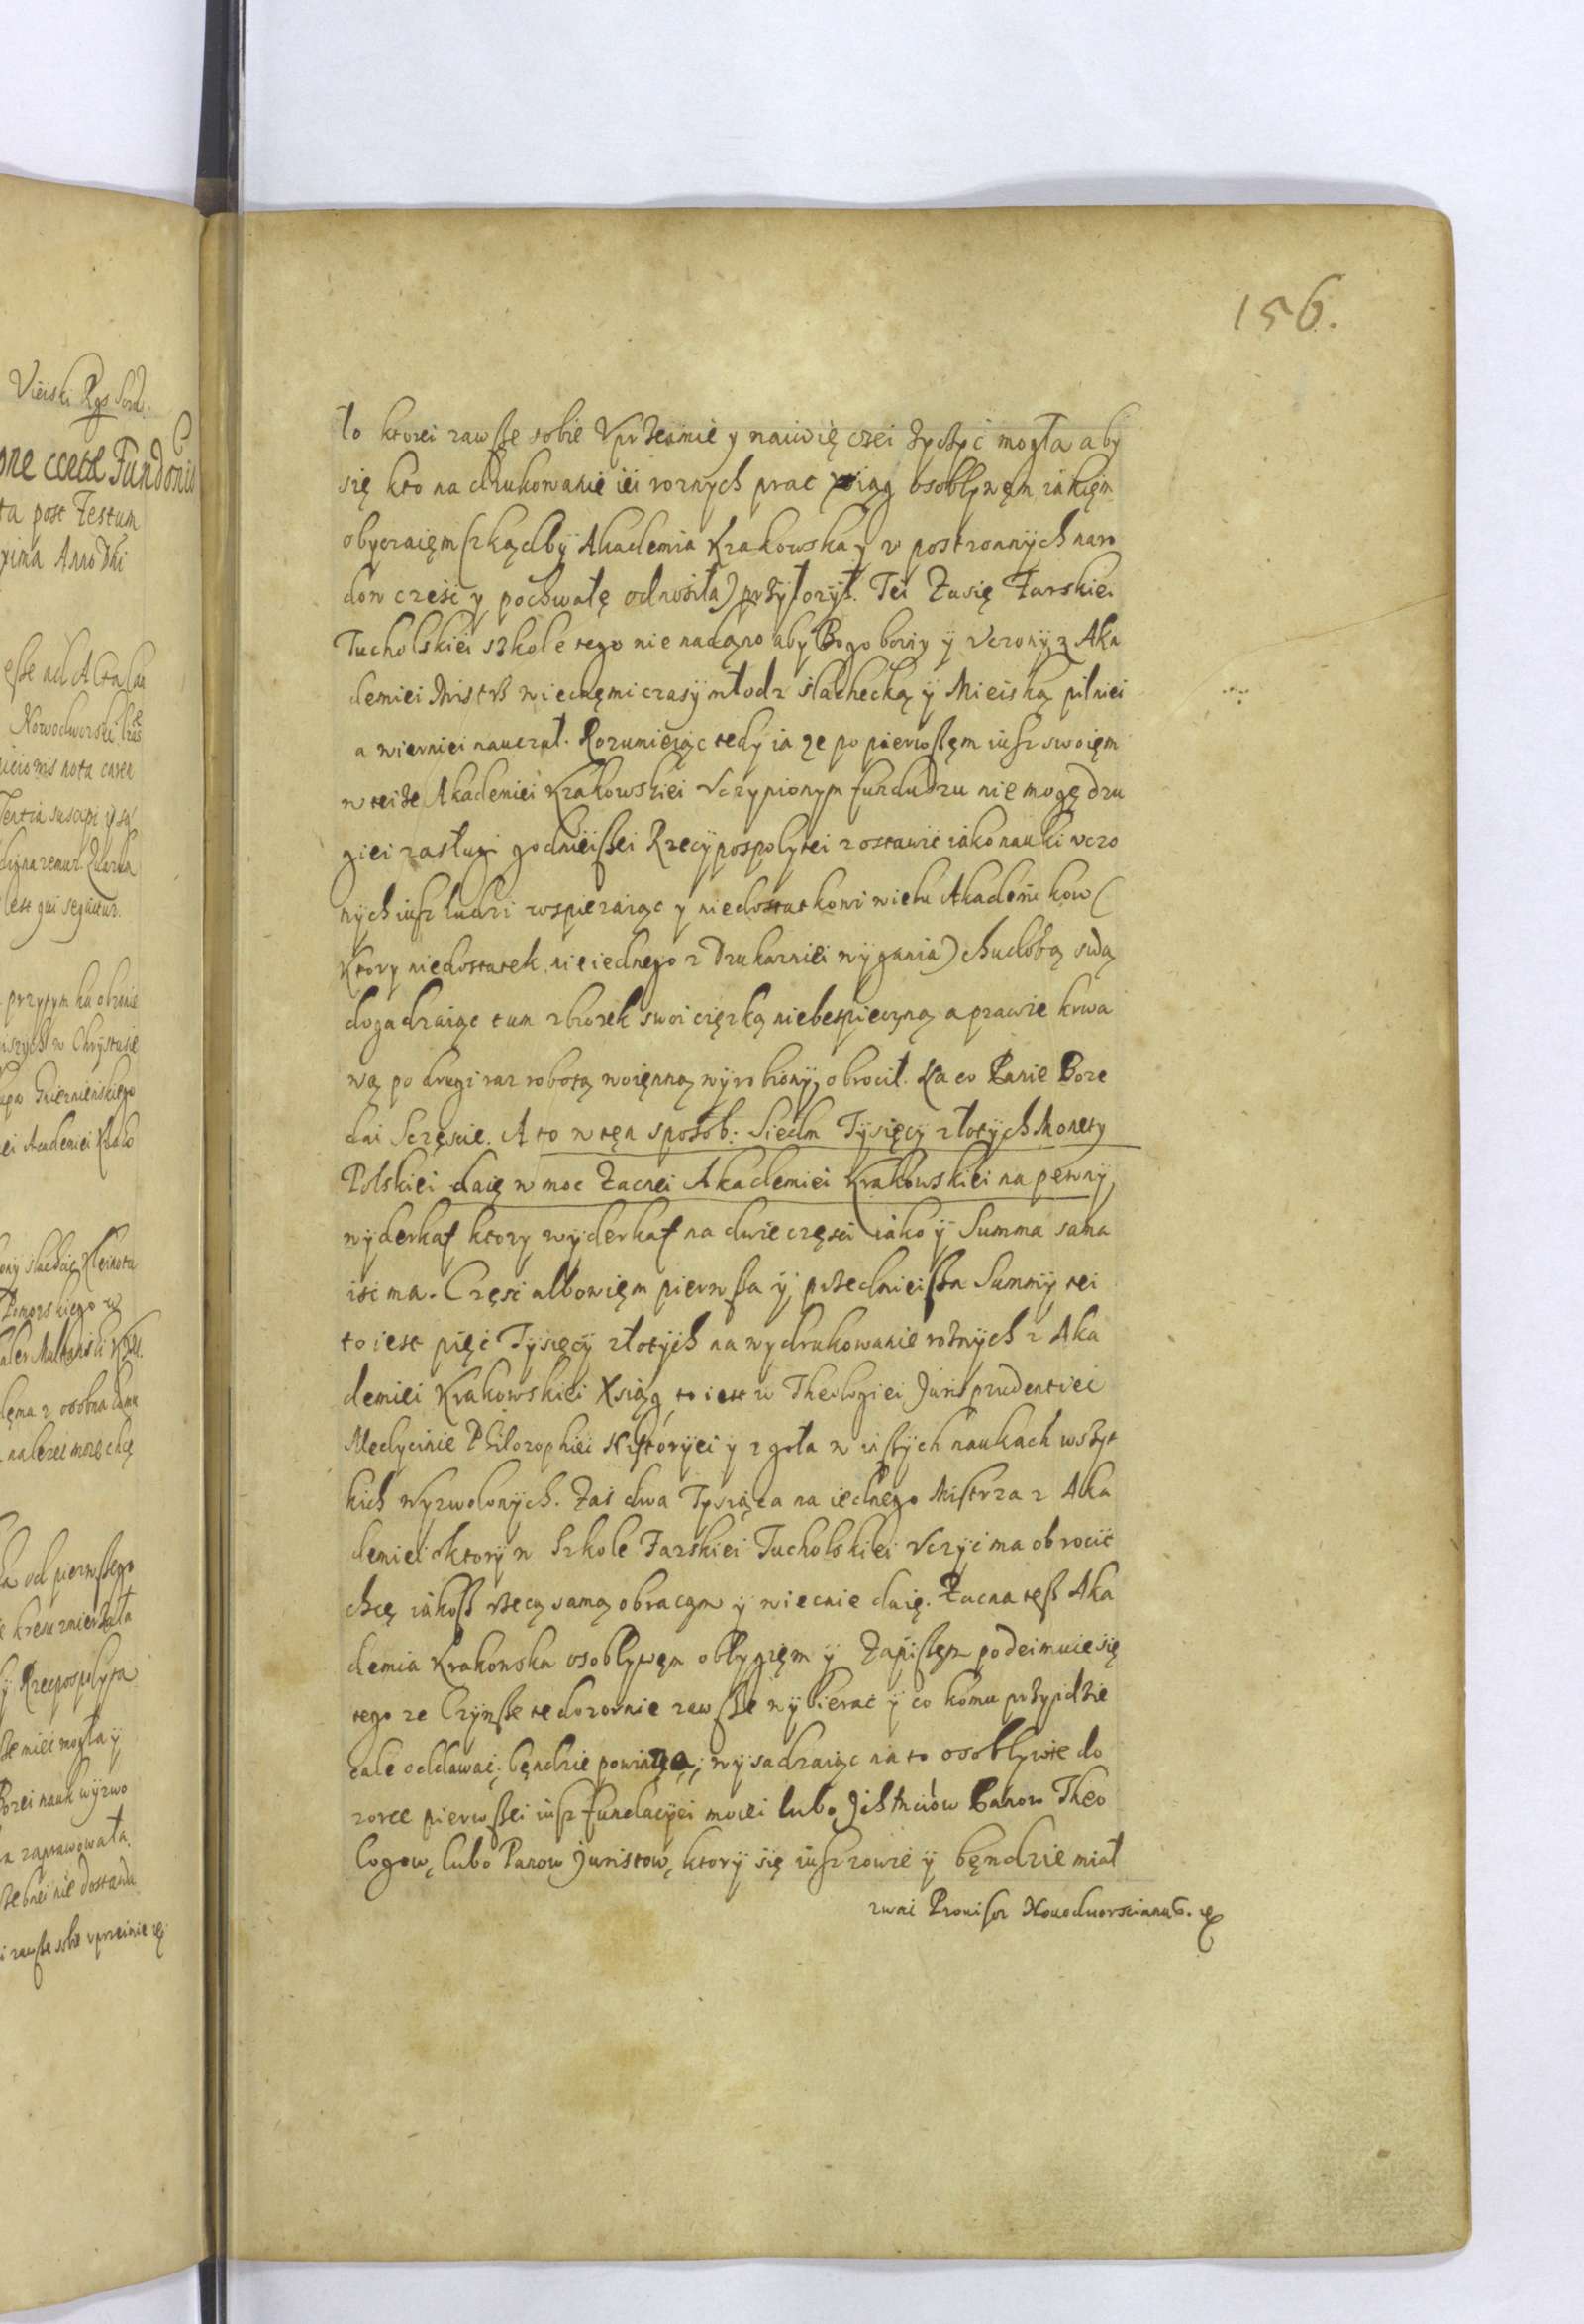 Vieiski Rgs
Fundonis
ta post Festum
xima Anno Dni
esse ad Acta
Nowodworski
nota caren
suscepi
lest qui sequitur.
przytym ku obronie
w Chrystusie
Gnieznienskiego
ei Academiei Krako
Kleinotu
Pomorskiego w
z osobna
nalezei moze chcę
od pierwßego
kresu zmierßała
ÿ Rzecpospolyta
mieć mogła ÿ
Bozei nauk wÿzwo
zaprawowała.
nie dostawa
i zawße sobie vprzeimie
156.
to ktorei zawße sobie Vprzeimie y naiwięczei zyczyć mogła aby
się kto na drukowanie iei roznych prac xiąg osoblywęm iakięm
obyczaięm (zkądbÿ Akademia Krakowska y v postronnÿch naro
dow cześć y pochwałę odnosiła) przÿłozył. Tei Zasię Farskiei
Tucholskiei szkole tego nie nadąno aby Bogoboiny ÿ Vczonÿ z Aka
demiei Mistrß wiecznęmi czasÿ młodz slachecką ÿ Mieiską pilniei
a wierniei nauczał. Rozumieiąc tedÿ ia ze po pierwßęm iusz swoięm
w teize Akademiei Krakowskiei Vczynionym funduszu nie mogę dru
giei zasługi godnieißei Rzecÿpospolytei zostawic iako nauki vczo
nÿch iusz ludzi wspieraiąc y niedostatkowi wielu Akademikow (
Ktory niedostatek nieiednego z Drukarniei wÿgania) chudobą swą
dogadzaiąc tam zbiorek swoi cięzką niebespieczną a prawie krwa
wą po drugi raz robotą woięnną wÿrobionÿ obrocił. Na co Panie Boze
dai Sczęscie. A to w tęn sposob: Siedm Tÿsięcÿ złotÿch Monety
Polskiei daię w moc Zacnei Akademiei Krakowskiei na pewnÿ
wÿderkaf ktory wÿderkaf na dwie częsci iako ÿ Summa sama
isc ma. Częsć albowięm pierwßa ÿ przednieißa Summÿ tei
to iest pięć Tÿsięcÿ złotÿch na wydrukowanie roznÿch z Aka
demiei Krakowskiei Xsiąg to iest w Theologiei Jurisprudentiei
Medycinie Philozophiei Historÿei y zgoła w inßÿch naukach wszyt
kich Wyzwolonÿch. Zaś dwa Tysiąca na iednego Mistrza z Aka
demiei ktorÿ w Szkole Farskiei Tucholskiei Vczyć ma obrocić
chcę iakoß rzeczą samą obracąm ÿ wiecnie daię. Zacna teß Aka
demia Krakowska osoblywęm oblygięm ÿ Zapisęm podeimuie się
tego ze Czynße te dozornie zawße wybierać ÿ co komu przypidzie
cale oddawać będzie powinna; wÿsadzaiąc na to osoblywie do
zorce pierwßei iusz fundacÿei moiei lubo Jch Mciow Panow Theo
logow, lubo Panow Juristow, ktorÿ się iusz zowie ÿ będzie miał
zwać Prouisor Nouoduorscianus. rę